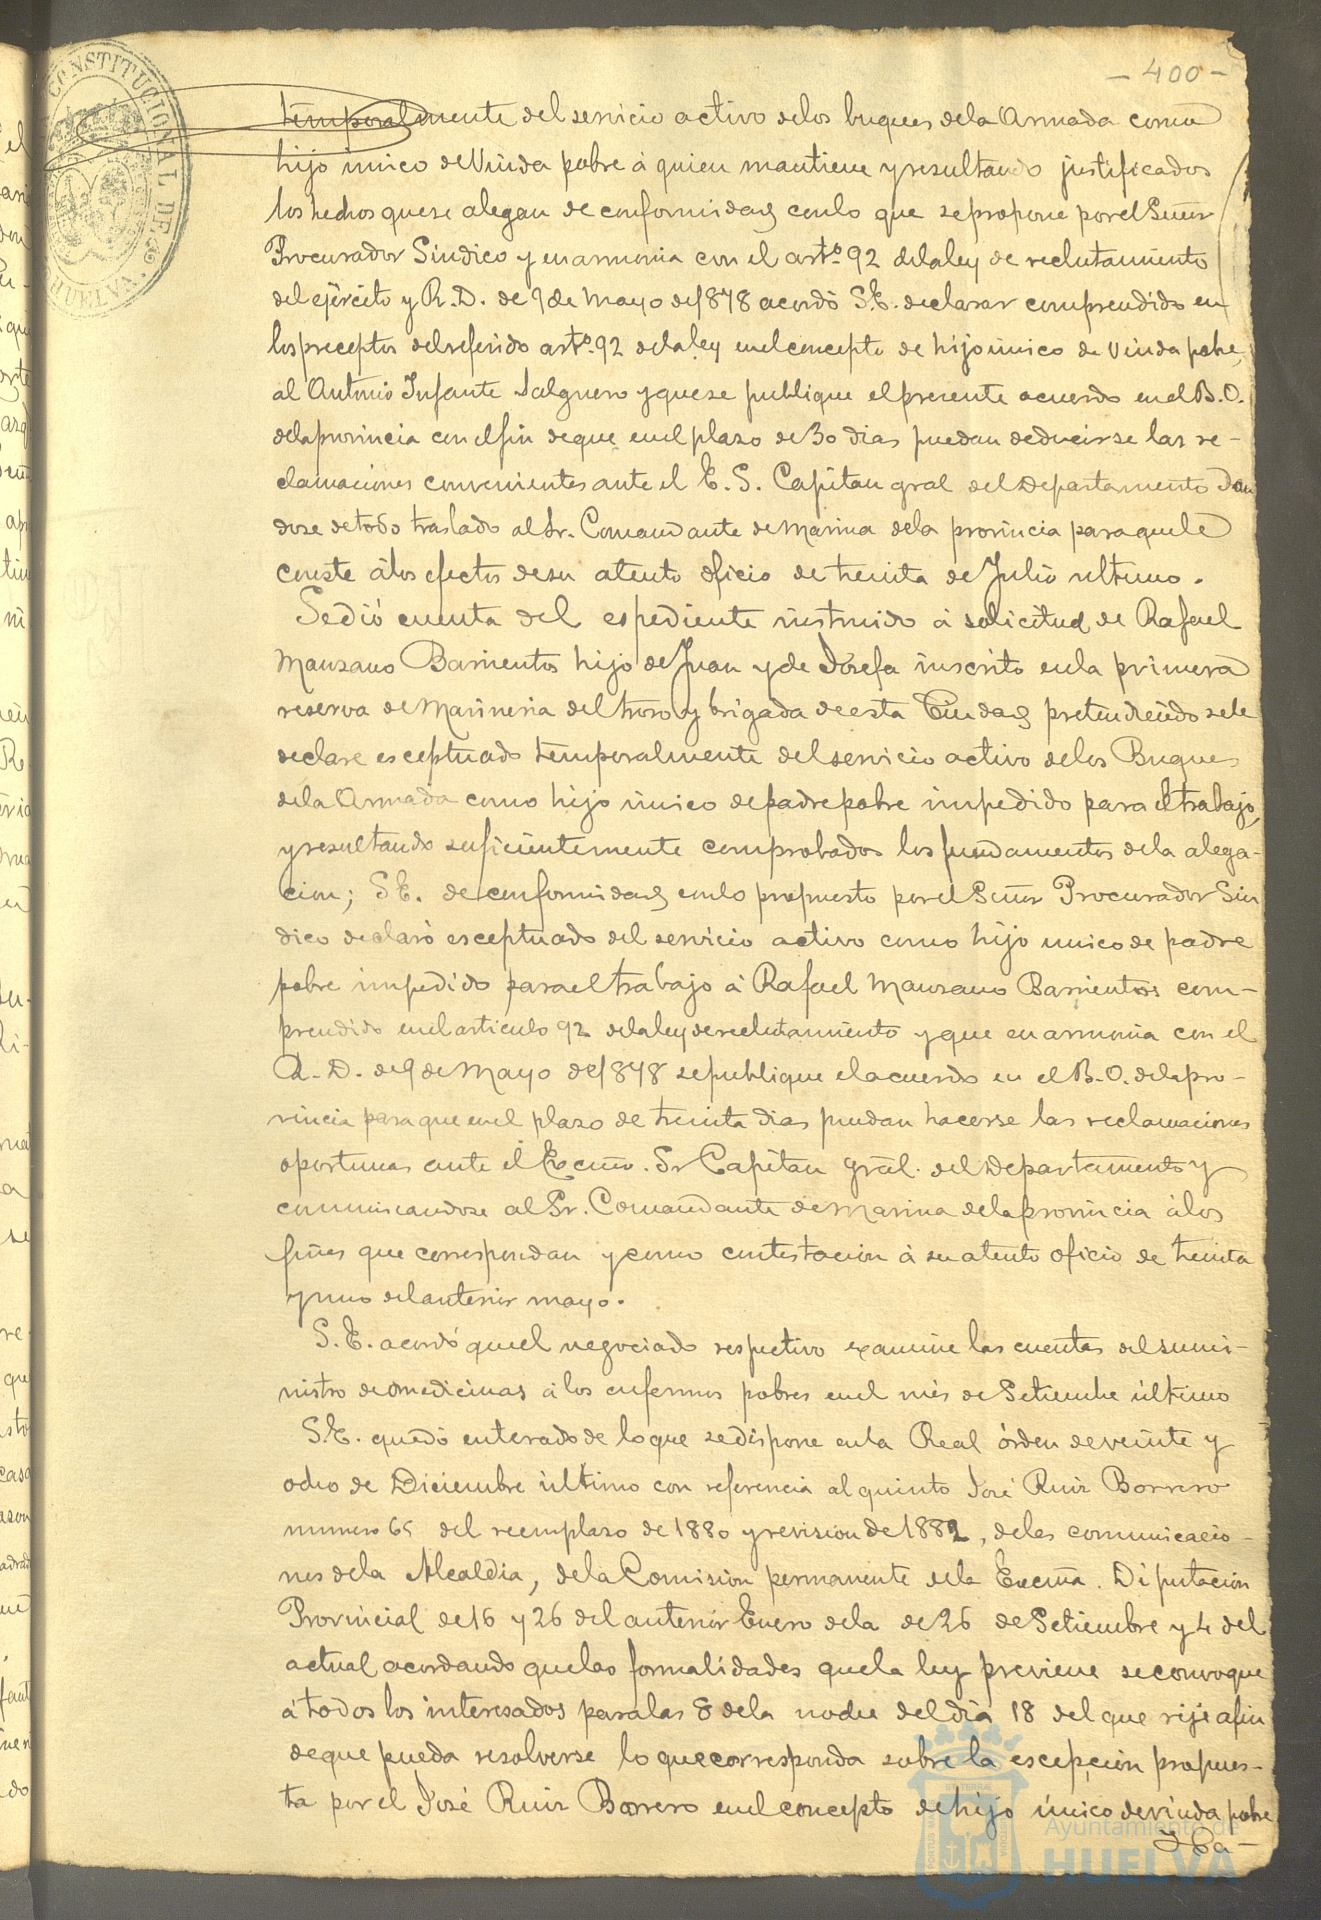 - 400 -
CONSTITUCIONAL DE
HUELVA
temporalmente del servicio activo delos buques dela Armada como
hijo único de Viuda pobre á quien mantiene y resultando justificados
los hechos que se alegan de conformidad conlo que se propone por el Señor
Procurador Síndico y en armonia con el artº. 92 dela ley de reclutamiento
del ejército y R. D. de 9 de Mayo de 1878 acordó S.E. declarar comprendido en
los preceptos del referido artº. 92 dela ley en el concepto de hijo único de Viuda pobre,
al Antonio Infante Salguero y que se publique el presente acuerdo en el B.O.
dela provincia con el fin de que en el plazo de 30 dias puedan deducirse las re-
clamaciones convenientes ante el E. S. Capitan gral del Departamento dan
dose de todo traslado al Sr. Comandante de Marina dela provincia para que le
conste á los efectos de su atento oficio de treinta de Julio ultimo.
Se dió cuenta del espediente instruido á solicitud de Rafael
Manzano Barrientos hijo de Juan y de Josefa inscrito en la primera
reserva de Marineria del trozo y brigada de esta Ciudad pretendiendo se le
declare esceptuado temporalmente del servicio activo delos Buques
dela Armada como hijo único de padre pobre impedido para el trabajo,
y resultando suficientemente comprobados los fundamentos dela alega-
cion; S.E. de conformidad con lo propuesto por el Señor Procurador Sin
dico declaró esceptuado del servicio activo como hijo unico de padre
pobre impedido para el trabajo á Rafael Manzano Barrientos com-
prendido en el articulo 92 dela ley de reclutamiento y que en armonia con el
R. D. de 9 de Mayo de 1878 se publique el acuerdo en el B.O. dela pro-
vincia para que en el plazo de treinta dias puedan hacerse las reclamaciones
oportunas ante el Excmo. Sr Capitan gral. del Departamento y
comunicandose al Sr. Comandante de Marina dela provincia á los
fines que correspondan y como contestacion á su atento oficio de treinta
y uno del anterior mayo.
S.E. acordó que el negociado respectivo examine las cuentas del sumi-
nistro de medicinas á los enfermos pobres en el mes de Setiembre último
S.E. quedó enterado de lo que se dispone en la Real órden de veinte y
ocho de Diciembre último con referencia al quinto José Ruiz Borrero
numero 65 del reemplazo de 1880 y revision de 1882, de las comunicacio-
nes dela Alcaldia, dela Comision permanente de la Excma. Diputacion
Provincial de 16 y 26 del anterior Enero dela de 26 de Setiembre y 4 del
actual acordando que las formalidades que la ley previene se convoque
á todos los interesados para las 8 dela noche del dia 18 del que rije afin
de que pueda resolverse lo que corresponda sobre la escepcion propues-
ta por el José Ruiz Borrero en el concepto de hijo único de viuda pobre
Ayuntamiento de
HUELVA